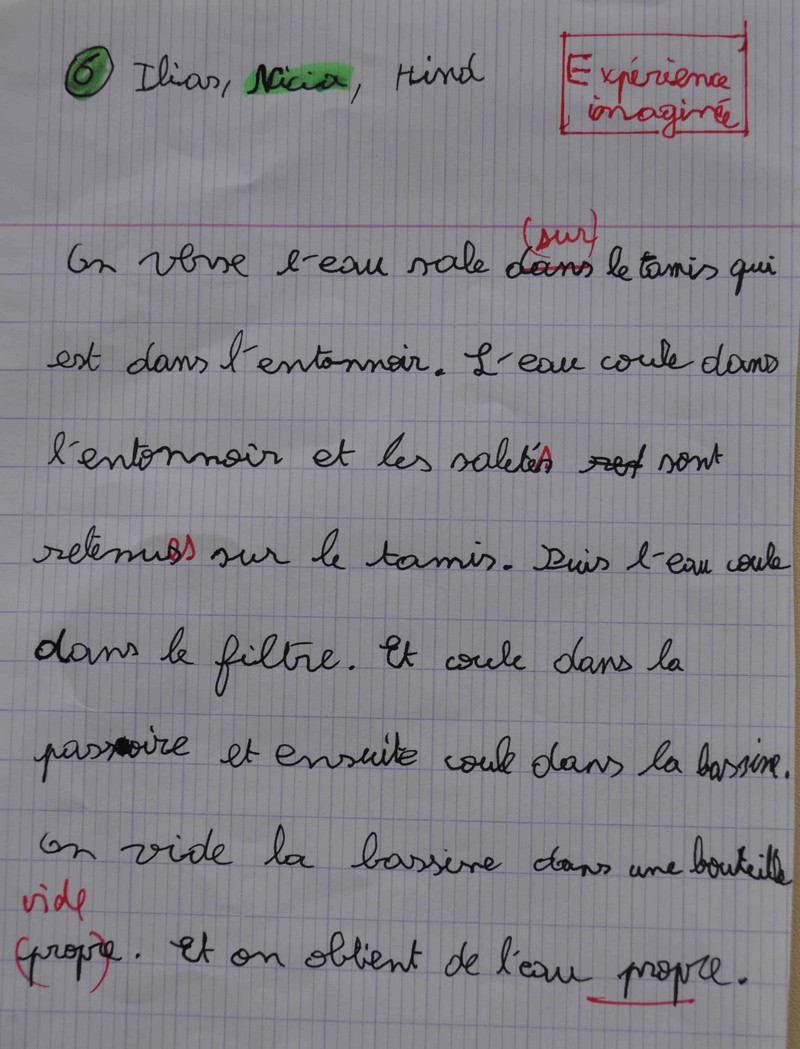 6 Ilias, Nicia, Hind
Expérience
imaginée
(sur)
On verse l'eau sale dans le tamis qui
est dans l'entonnoir. L'eau coule dans
l'entonnoir et les saletés sont
retenues sur le tamis. Puis l'eau coule
dans le filtre. Et coule dans la
passoire et ensuite coule dans la bassine.
On vide la bassine dans une bouteille
vide
(propre). Et on obtient de l'eau propre.